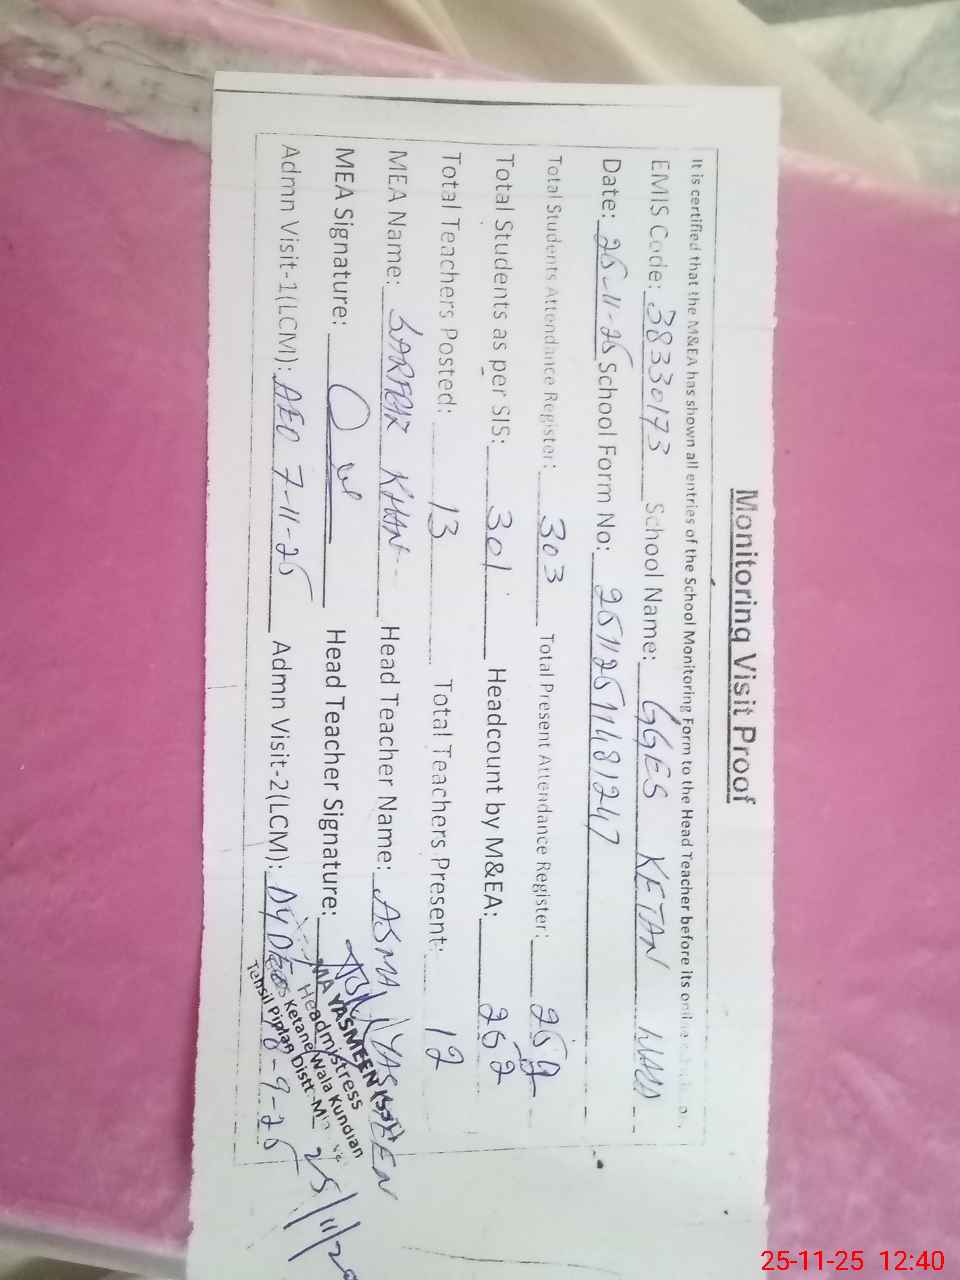 Monitoring Visit Proof
It is certified that the M&EA has shown all entries of the School Monitoring Form to the Head Teacher before its online
EMIS Code: 38330173 School Name: GGES KETAN WALA
Date: 25-11-25 School Form No: 25112511481247
Total Students Attendance Register: 303 Total Present Attendance Register: 252
Total Students as per SIS: 301 Headcount by M&EA: 252
Total Teachers Posted: 13 Total Teachers Present: 12
MEA Name: KHAN Head Teacher Name: ASMA YASMEEN
MEA Signature: Head Teacher Signature:
Admn Visit-1(LCM): AEO 7-11-25 Admn Visit-2(LCM): DYDEO -9-25
MA YASMEEN
Headmistress
Ketane Wala Kundian
Tehsil Piplan Distt:
25/11/
25-11-25 12:40